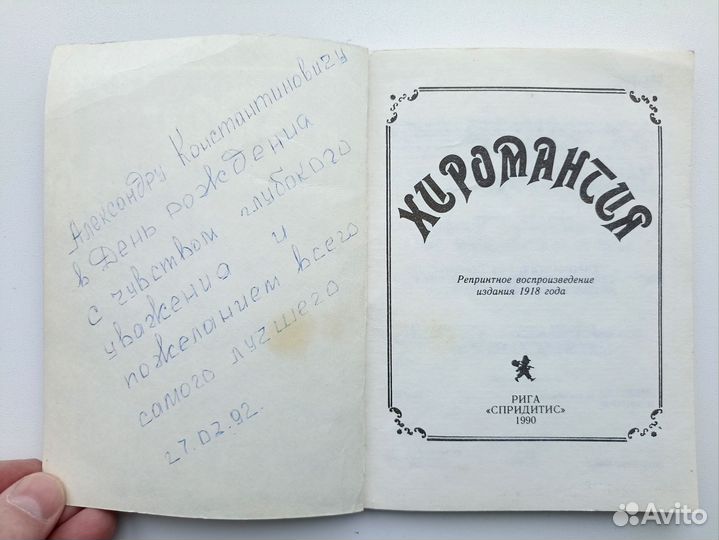 Александру Константиновичу
в День рождения
с чувством глубокого
уважения и
пожеланием всего
самого лучшего
27.02.92.
ХИРОМАНТИЯ
Репринтное воспроизведение
издания 1918 года
РИГА
«СПРИДИТИС»
1990
Avito